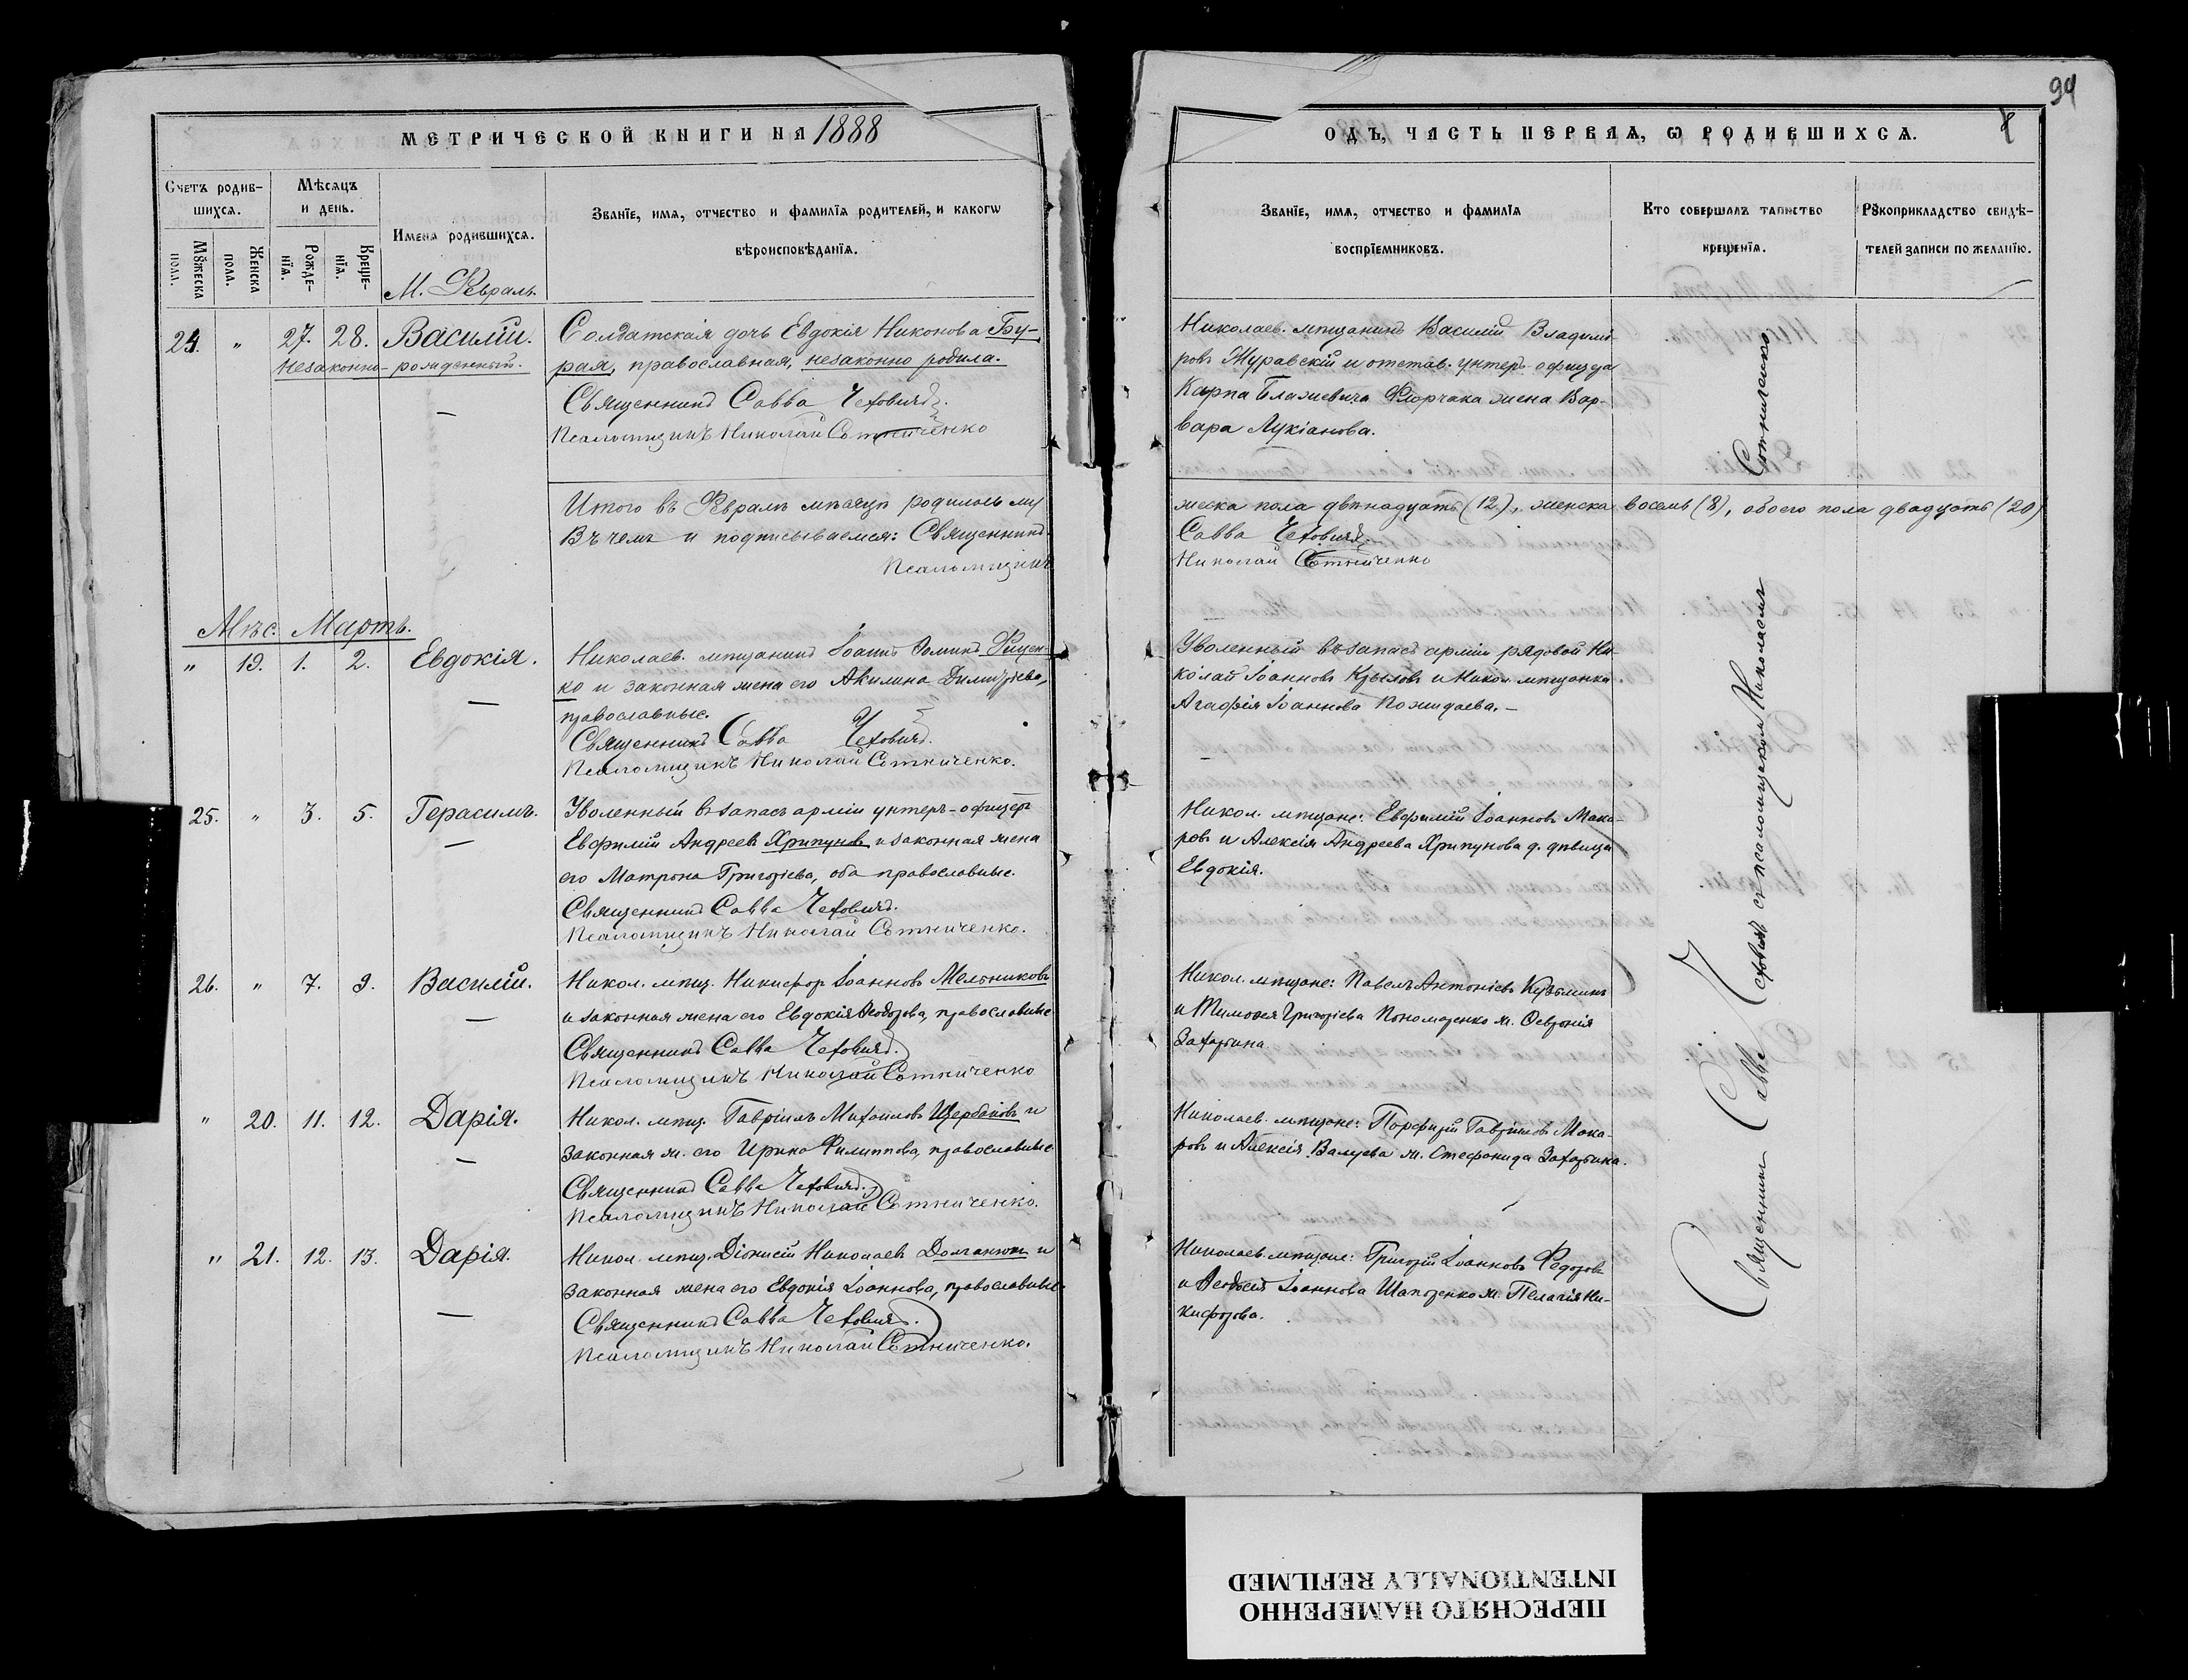 94
МЕТРИЧЕСКОЙ КНИГИ НА 1888
Счетъ родив-
шихся.
Мѣсяцъ
и день.
Имена родившихся.
Званїе, имя, отчество и фамилїя родителей, и какогѡ
вѣроисповѣданїя.
Мꙋжеска
пола.
Женска
пола.
Рожде-
нїя.
Креще-
нїя.
М. Февраль.
24. " 27. 28. Василій.
Незаконно-рожденный.
Солдатская дочь Евдокія Никонова Бу-
рая, православная, незаконно родила.
Священникъ Савва Чеховичъ.
Псаломщикъ Николай Сотниченко
Итого въ Февралѣ мѣсяцѣ родилось му
Въ чемъ и подписываемся: Священникъ
Псаломщикъ
Мѣс. Мартъ.
" 19. 1. 2. Евдокія.
Николаев. мѣщанинъ Іоаннъ Фоминъ Фищен-
ко и законная жена его Акилина Димитріева,
православные.
Священникъ Савва Чеховичъ.
Псаломщикъ Николай Сотниченко.
25. " 3. 5. Герасимъ.
Уволенный въ запасъ арміи унтеръ-офицеръ
Евфимій Андреевъ Хрипуновъ и законная жена
его Матрона Григоріева, оба православные.
Священникъ Савва Чеховичъ.
Псаломщикъ Николай Сотниченко.
26. " 7. 9. Василій.
Никол. мѣщ. Никифор Іоанновъ Мельниковъ
и законная жена его Евдокія Ѳеодорова, православные
Священникъ Савва Чеховичъ.
Псаломщикъ Николай Сотниченко
" 20. 11. 12. Дарія.
Никол. мѣщ. Гавріилъ Михаиловъ Щербаковъ и
законная ж. его Ирина Филиппова, православные
Священникъ Савва Чеховичъ.
Псаломщикъ Николай Сотниченко.
" 21. 12. 13. Дарія.
Никол. мѣщ. Діонисій Николаевъ Долганюкъ и
законная жена его Евдокія Іоаннова, православные.
Священникъ Савва Чеховичъ.
Псаломщикъ Николай Сотниченко.
ОДЪ, ЧАСТЬ ПЕРВАЯ, Ѡ РОДИВШИХСЯ.
Званїе, имя, отчество и фамилїя
воспрїемниковъ.
Кто совершалъ таинство
крещенїя.
Рꙋкоприкладство свидѣ-
телей записи по желанїю.
Николаев. мѣщанинъ Василій Владимі-
ровъ Журавскій и отстав. унтеръ-офицера
Карпа Блажіевича Флорчака жена Вар-
вара Лукіанова.
жеска пола двѣнадцать (12), женска восемь (8), обоего пола двадцать (20)
Савва Чеховичъ.
Николай Сотниченко
Уволенный въ запасъ арміи рядовой Ни-
колай Іоанновъ Крыловъ и Никол. мѣщанка
Агафія Іоаннова Пожидаева.
Никол. мѣщане: Евфимій Іоанновъ Мака-
ровъ и Алексія Андреева Хрипунова д. дѣвица
Евдокія.
Никол. мѣщане: Павелъ Антоніевъ Кузьминъ
и Тимоѳея Григоріева Пономаренко ж. Февронія
Захарьина
Николаев. мѣщане: Порфирій Гавріиловъ Мака-
ровъ и Алексія Валуева ж. Стефанида Захарьина.
Николаев. мѣщане: Григорій Іоанновъ Федоровъ
и Ѳеодосія Іоаннова Шапоренко ж. Пелагія Ни-
кифорова.
Священникъ Савва Чеховичъ съ псаломщикомъ Николаемъ Сотниченко
ПЕРЕСНЯТО НАМЕРЕННО
INTENTIONALLY REFILMED